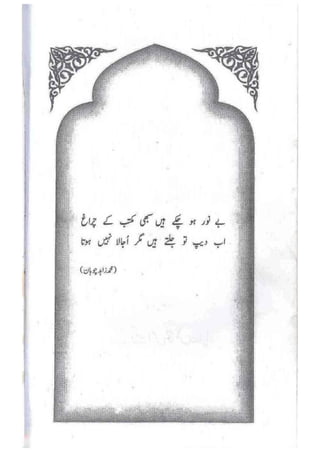 بے نور ہو چکے ہیں سبھی مکتب کے چراغ
اب دیپ تو جلتے ہیں مگر اُجالا نہیں ہوتا
(محمد زاہد چوہان)